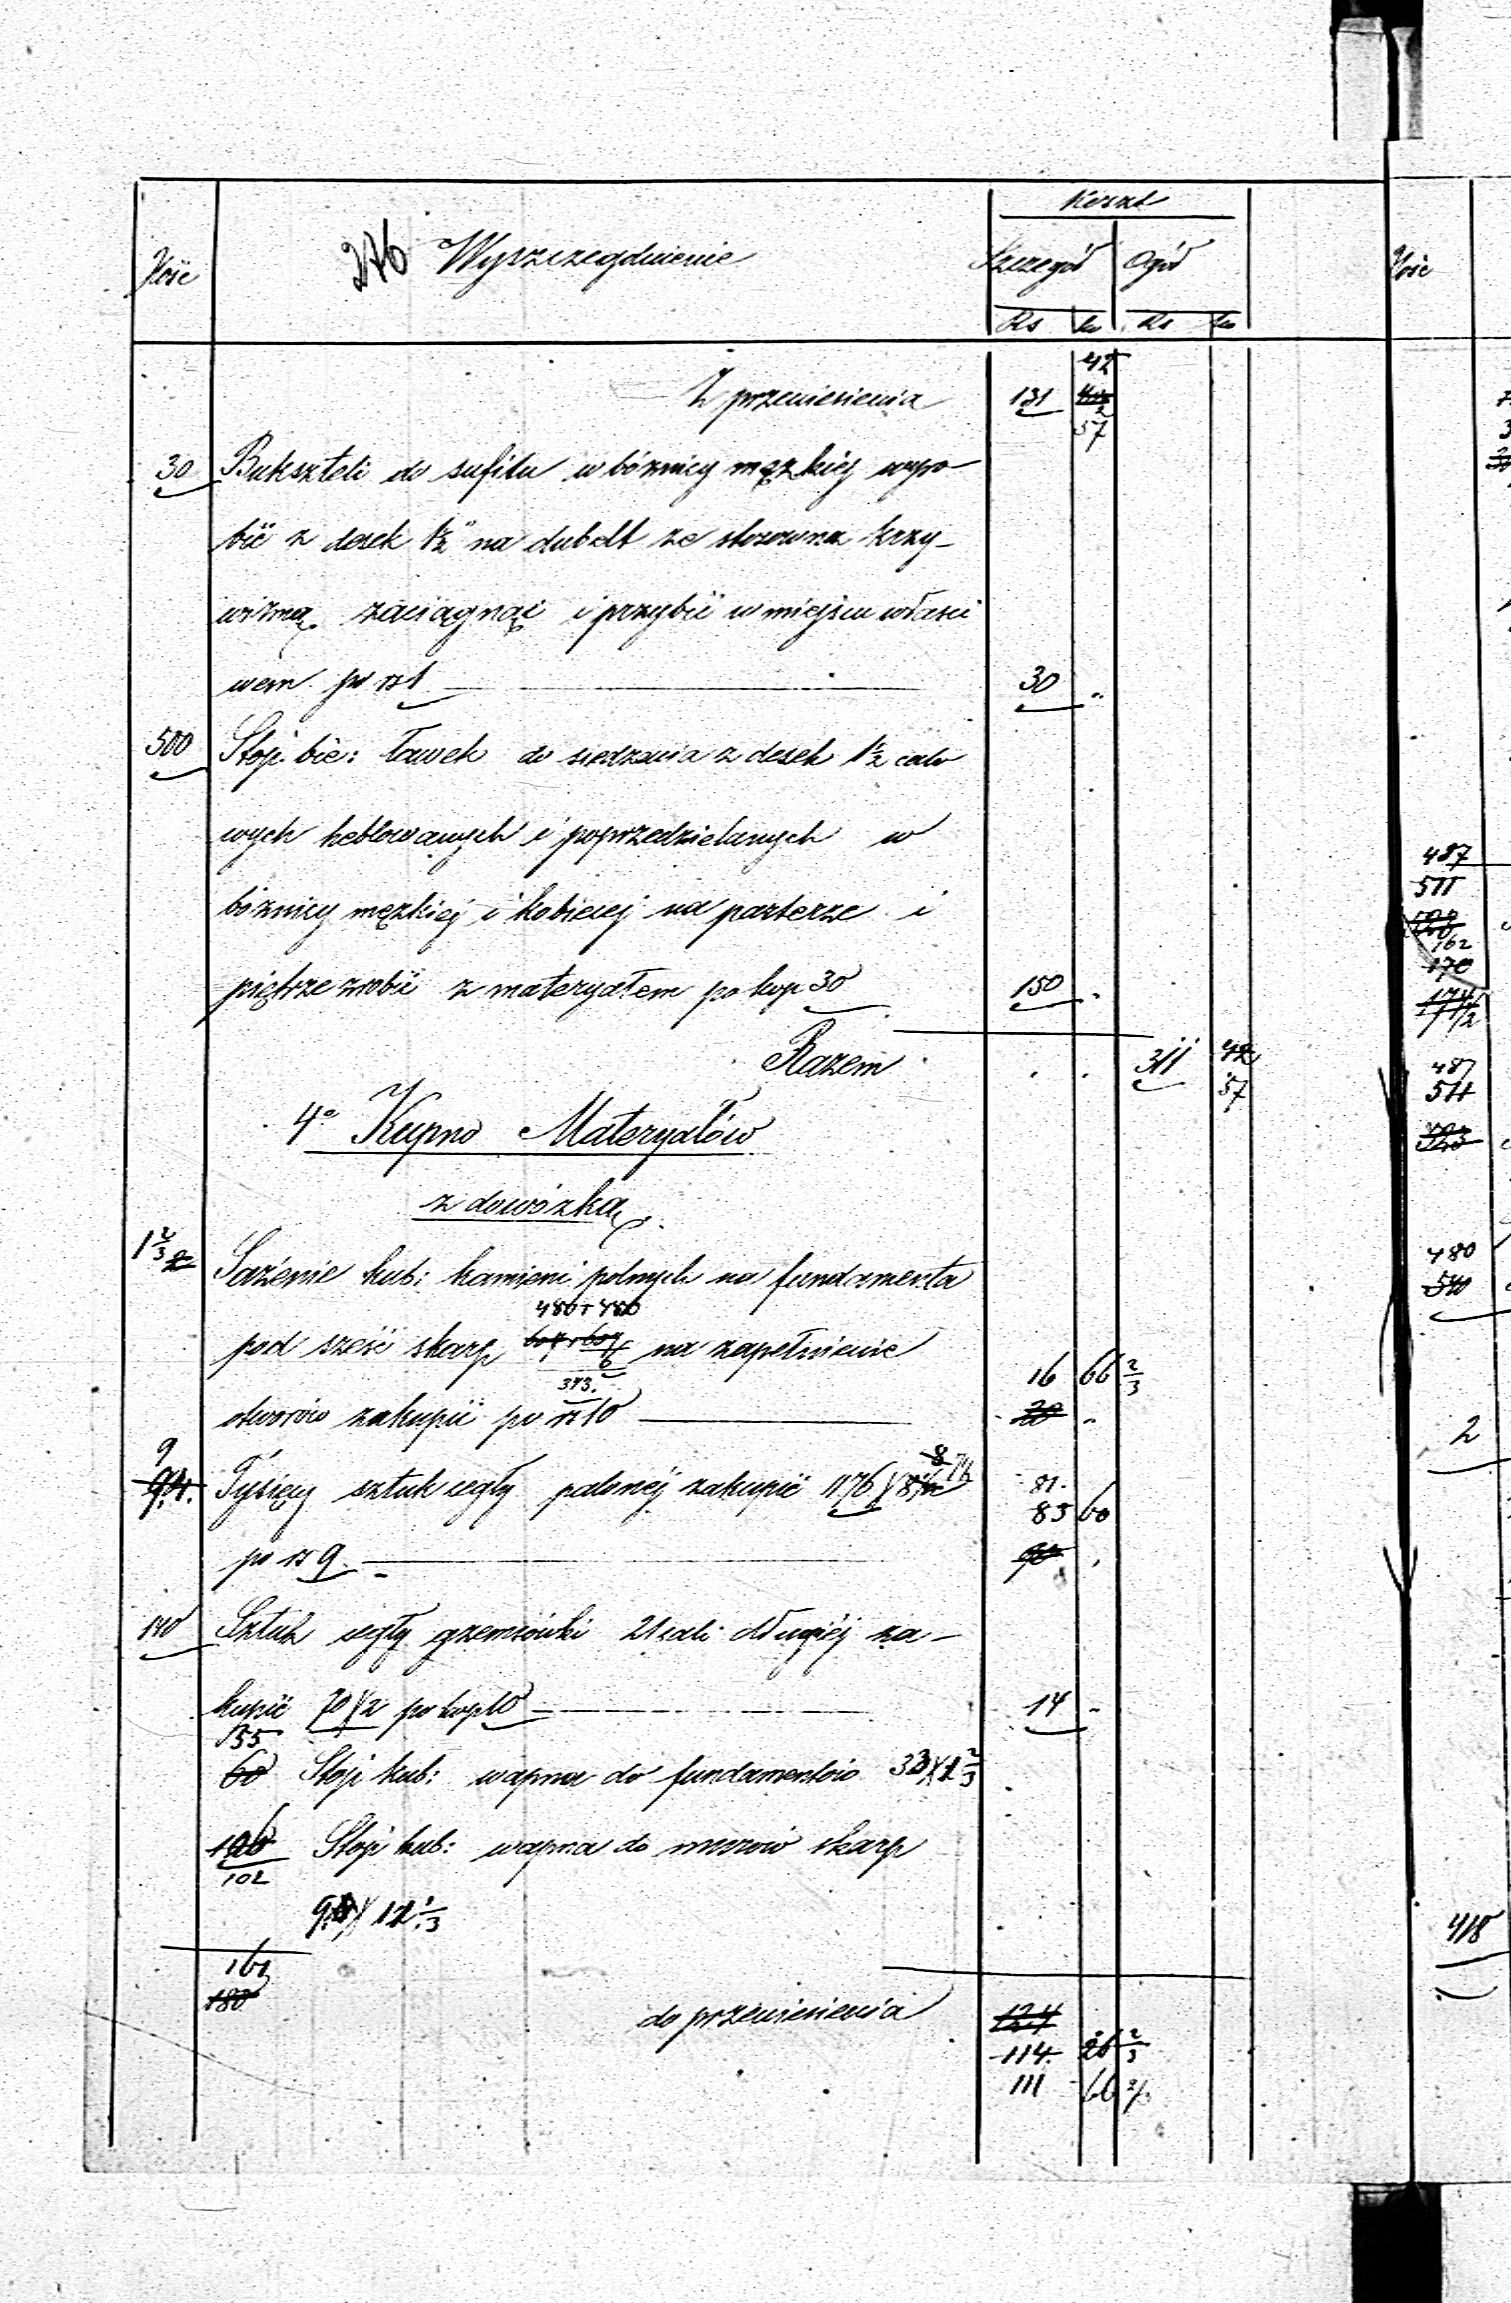 Koszt
Ilość 276 Wyszczególnienie Szczegół Ogół
Rs ko Rs ko
42
Z przeniesienia 131
57
30 Bukszteli do sufitu w bóżnicy męzkiej wyro-
bić z desek 1½" na dubelt ze stosowną krzy-
wizną zaciągnąć i przybić w miejscu właści
wem po rs 1 30 "
500 Stóp bie: ławek do siedzenia z desek 1½ calo
wych heblowanych i poprzedzielanych w
bóżnicy męzkiej i kobiecej na parterze i
piętrze zrobić z materyałem po kop 30 150 "
Razem 311 42
57
4° Kupno Materyałów
z dowózką
1⅔ 2 Sażenie kub: kamieni polnych na fundamenta
480+480
pod sześć skarp na zapełnienie 16 66⅔
373.
otworów zakupić po rs 10 20 "
9
9,4. Tysięcy sztuk cegły palonej zakupić 1176 81.
85 60
po rs 9 90
140 Sztuk cegły gzemsówki 21 cali długiej za-
kupić 70)(2 po kop 10 14 "
155
60 Stóp kub: wapna do fundamentów 33)(1⅔
106 Stóp kub: wapna do murów skarp
102
161
180
do przeniesienia 124
114. 26⅔
111 66⅔
487
511
162
170
487
511
480
540
2
418